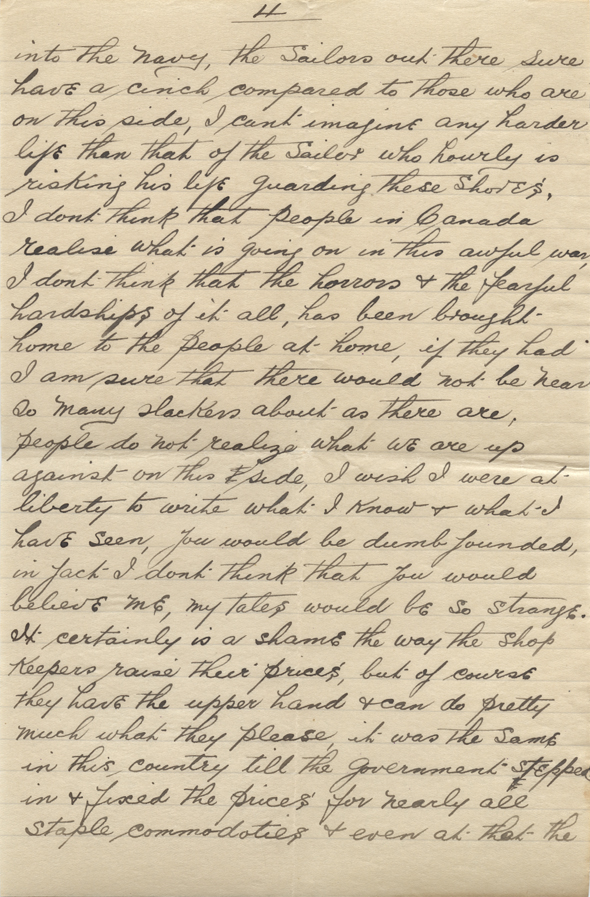 4
into the Navy, the Sailors out there sure
have a cinch compared to those who are
on this side, I cant imagine any harder
life than that of the Sailor who hourly is
risking his life guarding these Shores,
I dont think that people in Canada
realise what is going on in this awful war,
I dont think that the horrors & the fearful
hardships of it all, has been brought
home to the people at home, if they had
I am sure that there would not be near
so many slackers about as there are,
people do not realize what we are up
against on this side, I wish I were at
liberty to write what I know & what I
have seen, you would be dumbfounded,
in fact I dont think that you would
believe me, my tales would be so strange.
It certainly is a shame the way the shop
keepers raise their prices, but of course
they have the upper hand & can do pretty
much what they please, it was the same
in this country till the Government stepped
in & fixed the prices for nearly all
staple commodoties & even at that the